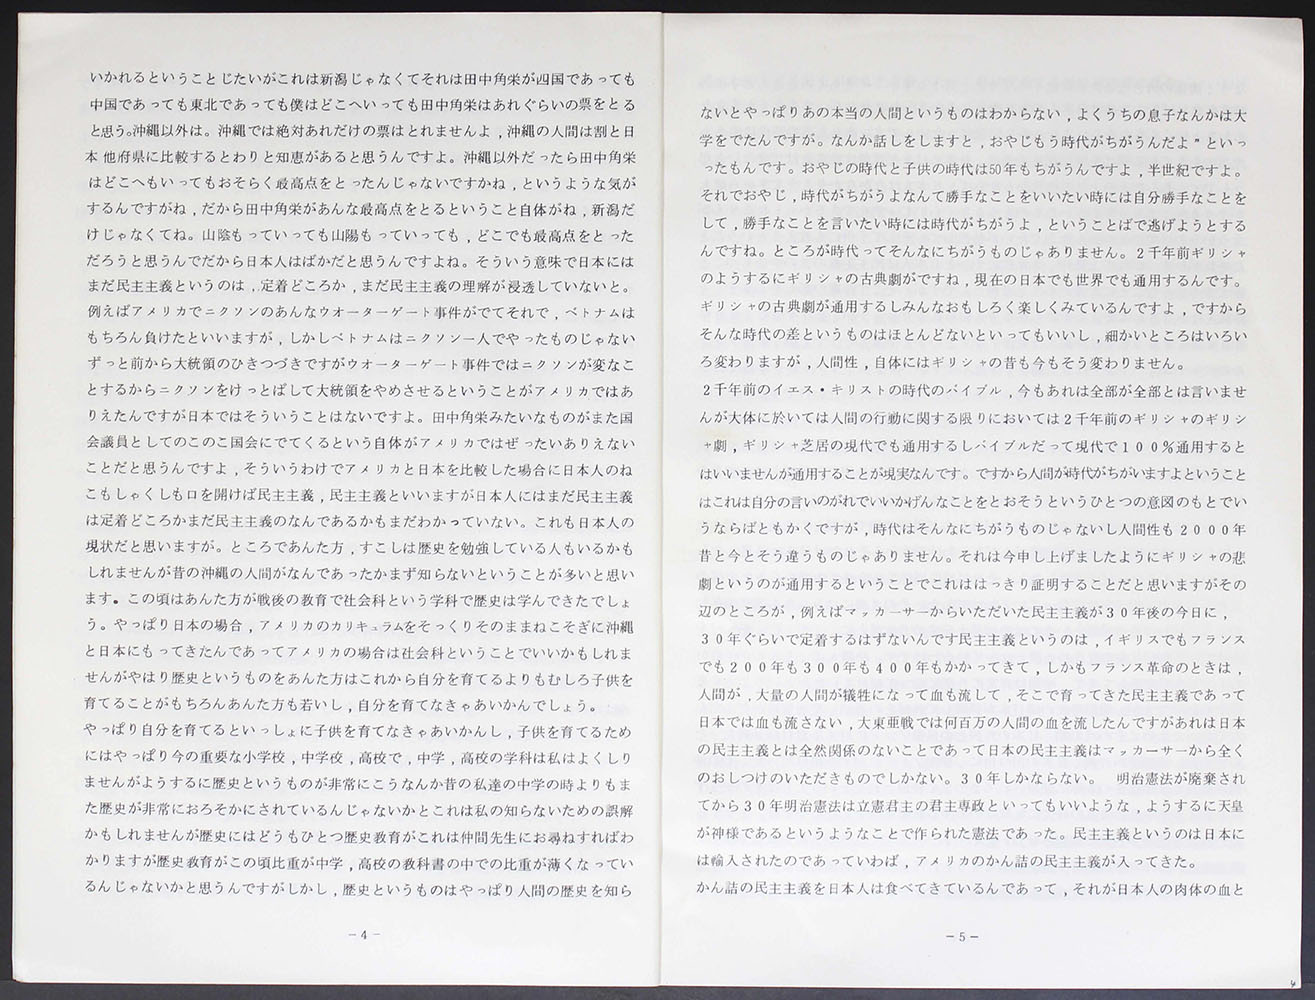 いかれるということじたいがこれは新潟じゃなくてそれは田中角栄が四国であっても
中国であっても東北であっても僕はどこへいっても田中角栄はあれぐらいの票をとる
と思う。沖縄以外は。沖縄では絶対あれだけの票はとれませんよ，沖縄の人間は割と日
本他府県に比較するとわりと知恵があると思うんですよ。沖縄以外だったら田中角栄
はどこへもいってもおそらく最高点をとったんじゃないですかね，というような気が
するんですがね，だから田中角栄があんな最高点をとるということ自体がね，新潟だ
けじゃなくてね。山陰もっていっても山陽もっていっても，どこでも最高点をとった
だろうと思うんでだから日本人はばかだと思うんですよね。そういう意味で日本には
まだ民主主義というのは，定着どころか，まだ民主主義の理解が浸透していないと。
例えばアメリカでニクソンのあんなウオーターゲート事件がでてそれで，ベトナムは
もちろん負けたといいますが，しかしベトナムはニクソン一人でやったものじゃない
ずっと前から大統領のひきつづきですがウオーターゲート事件ではニクソンが変なこ
とするからニクソンをけっとばして大統領をやめさせるということがアメリカではあ
りえたんですが日本ではそういうことはないですよ。田中角栄みたいなものがまた国
会議員としてのこのこ国会にでてくるという自体がアメリカではぜったいありえない
ことだと思うんですよ，そういうわけでアメリカと日本を比較した場合に日本人のね
こもしゃくしも口を開けば民主主義，民主主義といいますが日本人にはまだ民主主義
は定着どころかまだ民主主義のなんであるかもまだわかっていない。これも日本人の
現状だと思いますが。ところであんた方，すこしは歴史を勉強している人もいるかも
しれませんが昔の沖縄の人間がなんであったかまず知らないということが多いと思い
ます。この頃はあんた方が戦後の教育で社会科という学科で歴史は学んできたでしょ
う。やっぱり日本の場合，アメリカのカリキュラムをそっくりそのままねこそぎに沖縄
と日本にもってきたんであってアメリカの場合は社会科ということでいいかもしれま
せんがやはり歴史というものをあんた方はこれから自分を育てるよりもむしろ子供を
育てることがもちろんあんた方も若いし，自分を育てなきゃあいかんでしょう。
やっぱり自分を育てるといっしょに子供を育てなきゃあいかんし，子供を育てるため
にはやっぱり今の重要な小学校，中学校，高校で，中学，高校の学科は私はよくしり
ませんがようするに歴史というものが非常にこうなんか昔の私達の中学の時よりもま
た歴史が非常におろそかにされているんじゃないかとこれは私の知らないための誤解
かもしれませんが歴史にはどうもひとつ歴史教育がこれは仲間先生にお尋ねすればわ
かりますが歴史教育がこの頃比重が中学，高校の教科書の中での比重が薄くなってい
るんじゃないかと思うんですがしかし，歴史というものはやっぱり人間の歴史を知ら
－4－
ないとやっぱりあの本当の人間というものはわからない，よくうちの息子なんかは大
学をでたんですが。なんか話しをしますと，おやじもう時代がちがうんだよ〟といっ
ったもんです。おやじの時代と子供の時代は50年もちがうんですよ，半世紀ですよ。
それでおやじ，時代がちがうよなんて勝手なことをいいたい時には自分勝手なことを
して，勝手なことを言いたい時には時代がちがうよ，ということばで逃げようとする
んですね。ところが時代ってそんなにちがうものじゃありません。２千年前ギリシャ
のようするにギリシャの古典劇がですね，現在の日本でも世界でも通用するんです。
ギリシャの古典劇が通用するしみんなおもしろく楽しくみているんですよ，ですから
そんな時代の差というものはほとんどないといってもいいし，細かいところはいろい
ろ変わりますが，人間性，自体にはギリシャの昔も今もそう変わりません。
２千年前のイエス・キリストの時代のバイブル，今もあれは全部が全部とは言いませ
んが大体に於いては人間の行動に関する限りにおいては２千年前のギリシャのギリシ
ャ劇，ギリシャ芝居の現代でも通用するしバイブルだって現代で１００％通用すると
はいいませんが通用することが現実なんです。ですから人間が時代がちがいますよということ
はこれは自分の言いのがれでいいかげんなことをとおそうというひとつの意図のもとでい
うならばともかくですが，時代はそんなにちがうものじゃないし人間性も２０００年
昔と今とそう違うものじゃありません。それは今申し上げましたようにギリシャの悲
劇というのが通用するということでこれははっきり証明することだと思いますがその
辺のところが，例えばマッカーサーからいただいた民主主義が３０年後の今日に，
３０年ぐらいで定着するはずないんです民主主義というのは，イギリスでもフランス
でも２００年も３００年も４００年もかかってきて，しかもフランス革命のときは，
人間が，大量の人間が犠牲になって血も流して，そこで育ってきた民主主義であって
日本では血も流さない，大東亜戦では何百万の人間の血を流したんですがあれは日本
の民主主義とは全然関係のないことであって日本の民主主義はマッカーサーから全く
のおしつけのいただきものでしかない。３０年しかならない。　明治憲法が廃棄され
てから３０年明治憲法は立憲君主の君主専政といってもいいような，ようするに天皇
が神様であるというようなことで作られた憲法であった。民主主義というのは日本に
は輸入されたのであっていわば，アメリカのかん詰の民主主義が入ってきた。
かん詰の民主主義を日本人は食べてきているんであって，それが日本人の肉体の血と
－5－